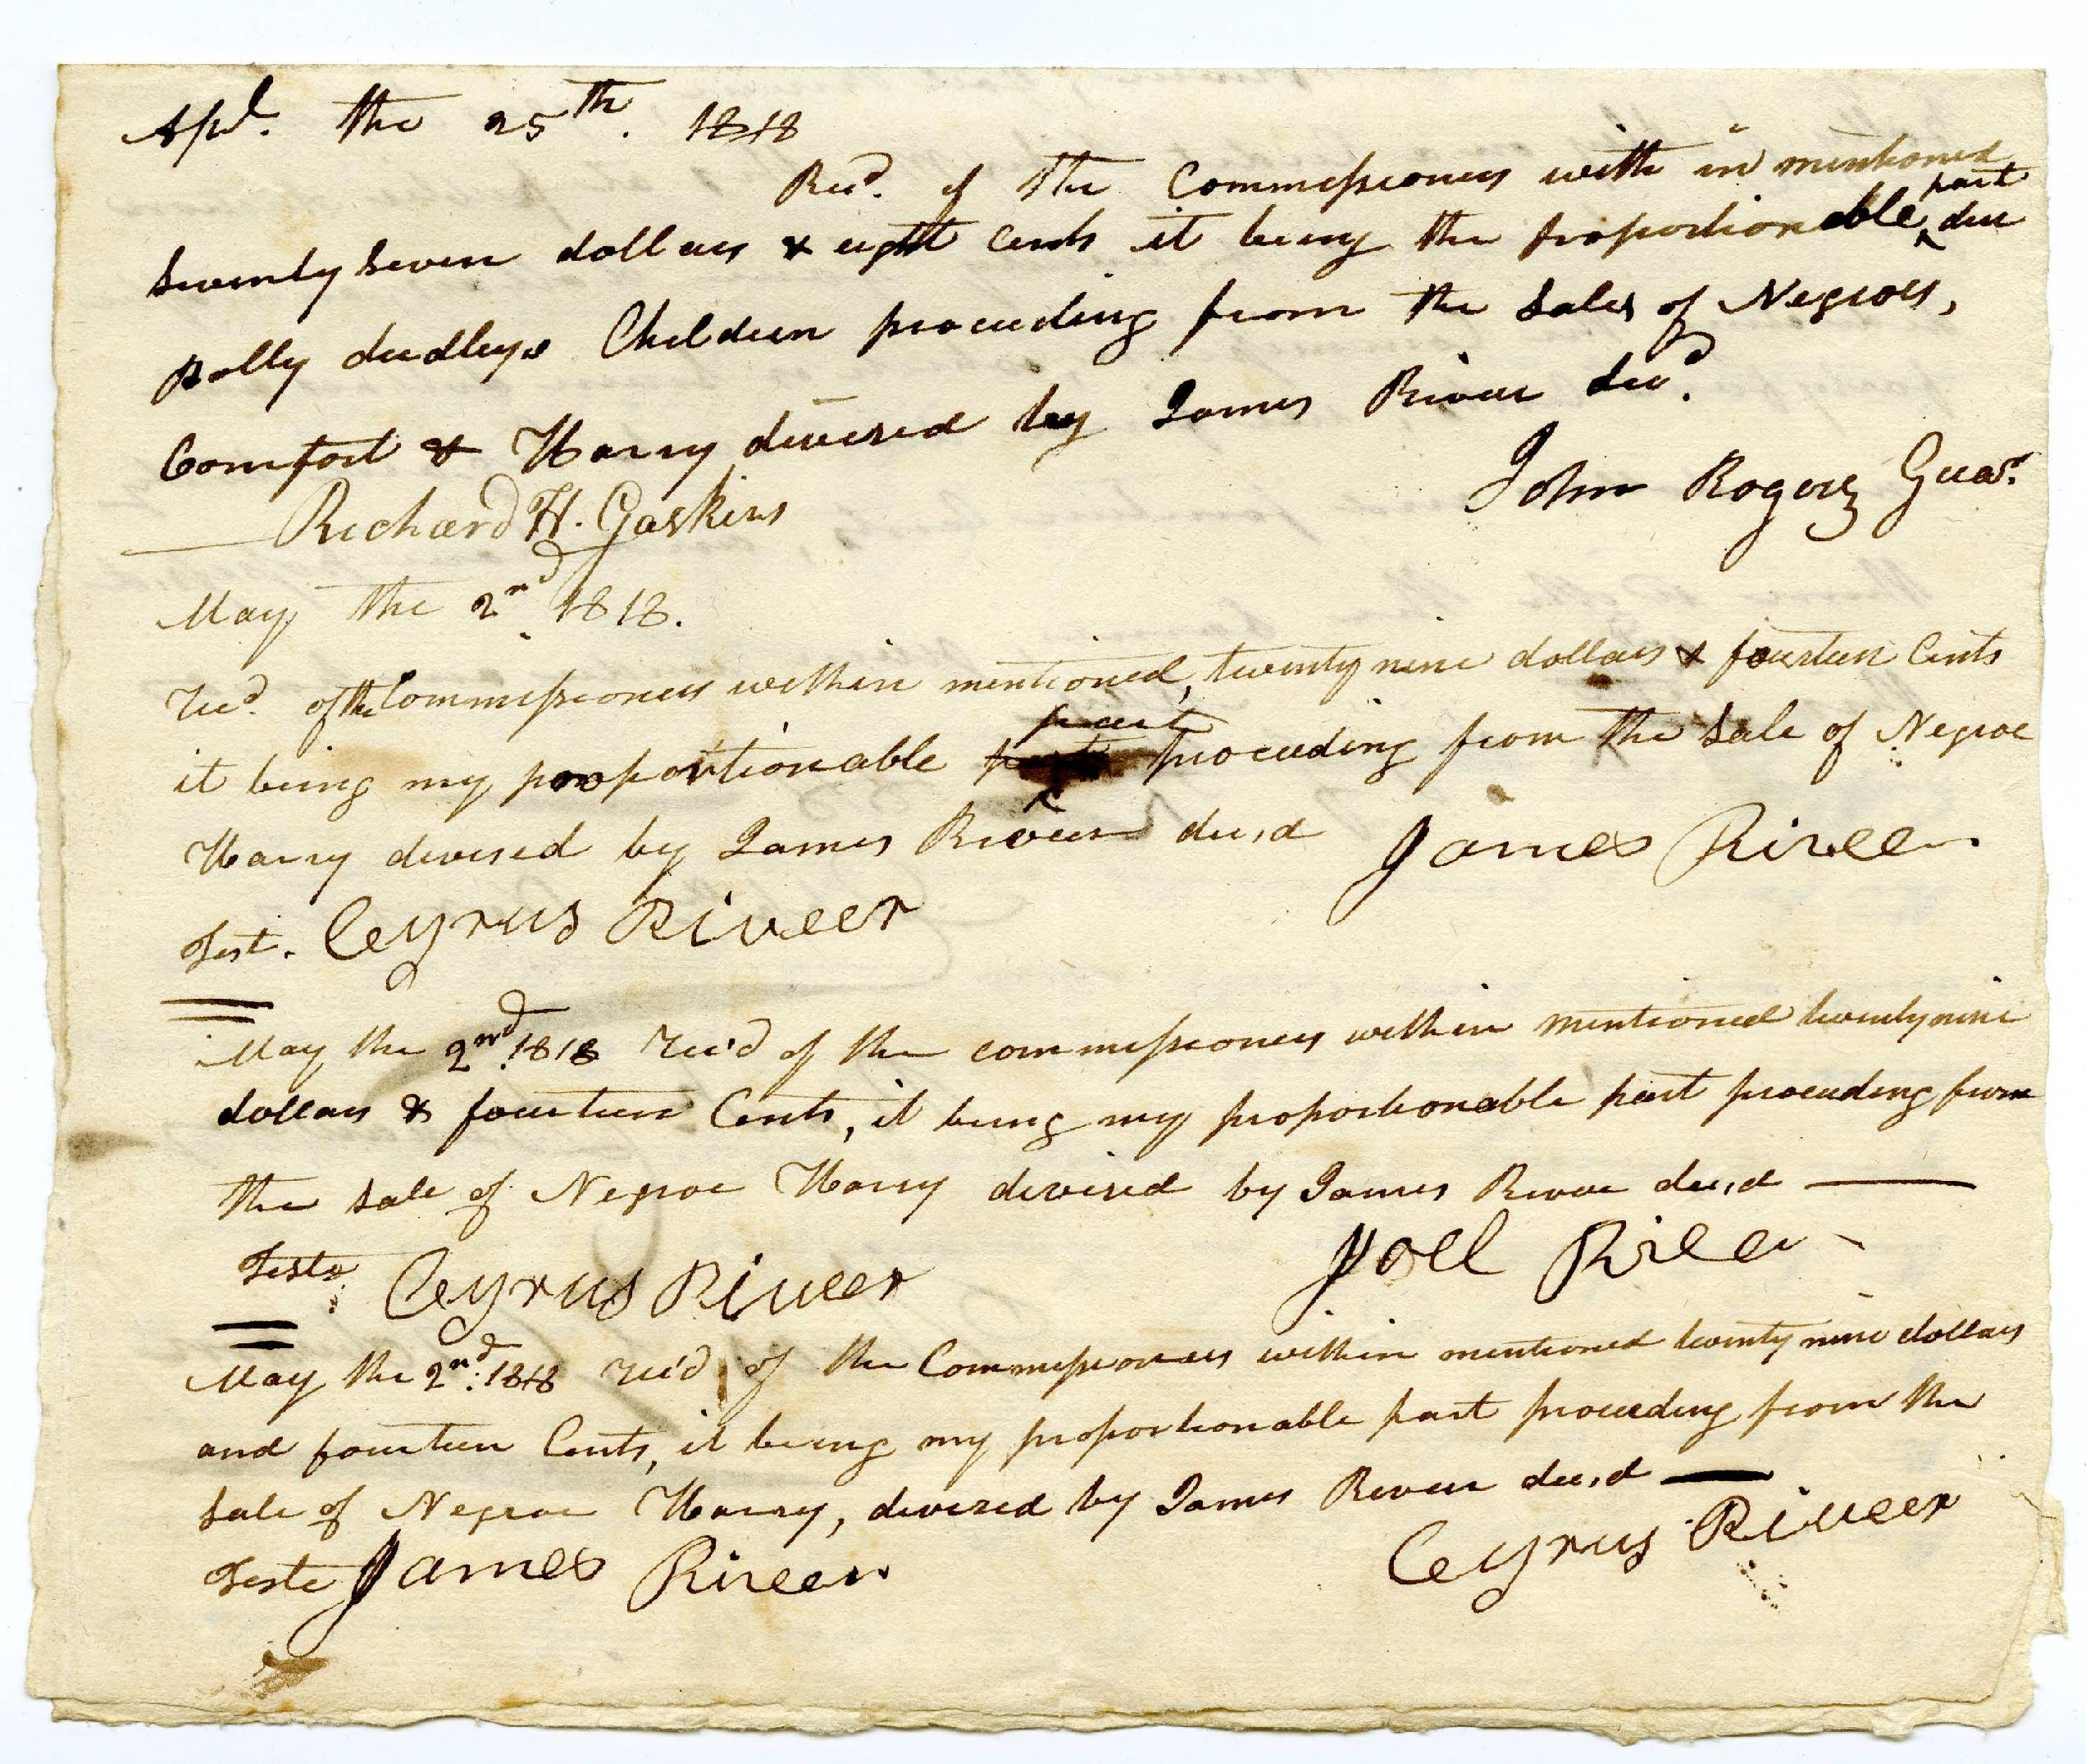 Apl. the 25th. 1818
Recd. of the Commissioners with in mentioned
seventy seven dollars & eight Cents it being the proportionable part due
Polly dudleys Children proceeding from the Sales of Negroes,
Comfort & Harry devised by James Riveer decd.
John Rogers Guar.
Richard H. Gaskins
May the 2nd 1818.
Recd. of the Commissioners within mentioned, twenty nine dollars & fourteen Cents
it being my proportionable part proceeding from the Sale of Negroe
Harry devised by James Riveer decd
James Riveer
Test. Cyrus Riveer
May the 2nd. 1818 Rec'd of the commissioners within mentioned twenty nine
dollars & fourteen Cents, it being my proportionable part proceeding from
the sale of Negroe Harry devised by James Riveer decd
Joel Riveer
Teste Cyrus Riveer
May the 2nd. 1818 Rec'd of the Commissioners within mentioned twenty nine dollars
and fourteen Cents, it being my proportionable part proceeding from the
sale of Negroe Harry, devised by James Riveer decd
Cyrus Riveer
Teste James Riveer